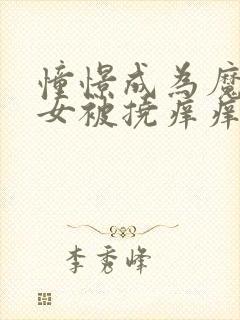 憧憬成為魔
女被撓痒痒
李秀峰